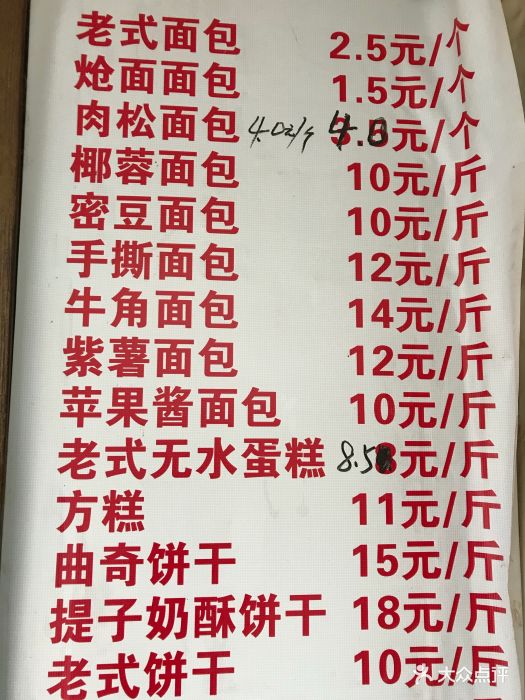 老式面包 2.5元/个
炝面面包 1.5元/个
肉松面包 4.0元/个 4.0元/个
椰蓉面包 10元/斤
密豆面包 10元/斤
手撕面包 12元/斤
牛角面包 14元/斤
紫薯面包 12元/斤
苹果酱面包 10元/斤
老式无水蛋糕 8.5元/斤
方糕 11元/斤
曲奇饼干 15元/斤
提子奶酥饼干 18元/斤
老式饼干 10元/斤
大众点评